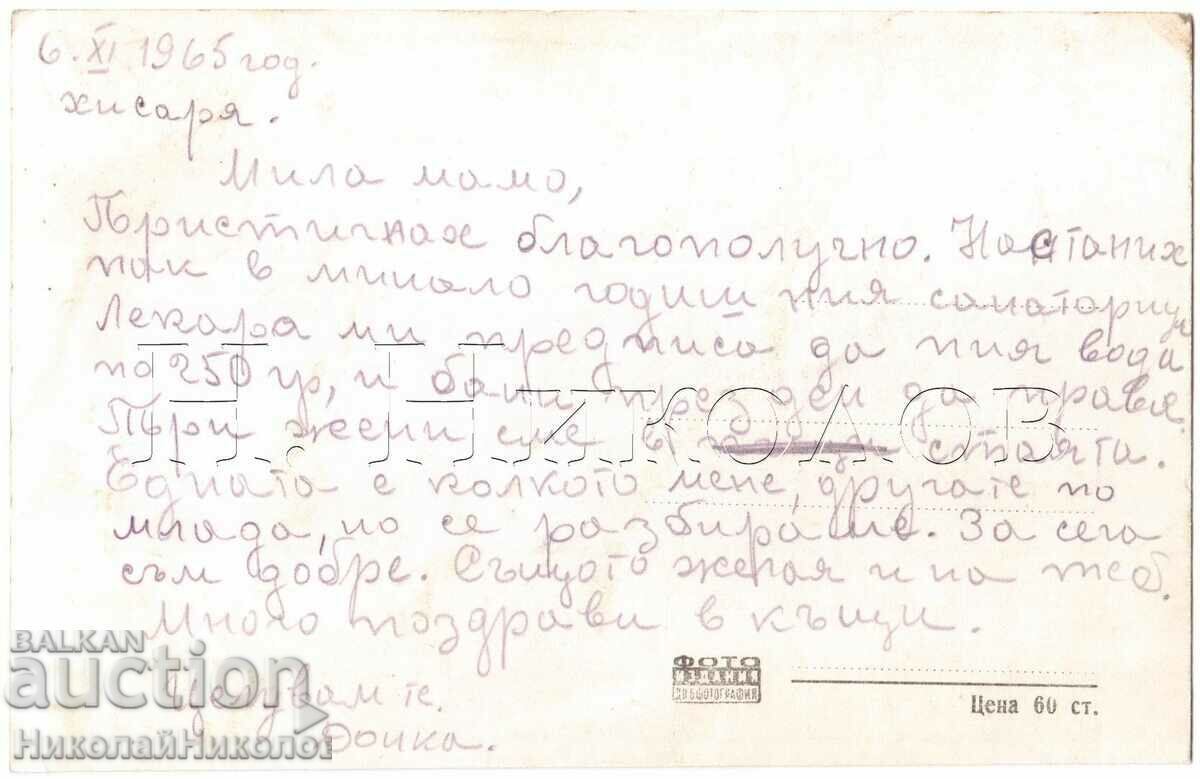 6. XI 1965 год.
хисаря.
Мила мамо,
Пристигнах благополучно. Настаних
пак в минало годиш ния санаториу
Лекара ми предписа да пия вода
по 250 гр, и бани през ден да правя.
При жени сме в стаята.
Едната е колкото мене, другате по
млада, но се разбираме. За сега
съм добре. Същото желая и на теб.
Много поздрави в къщи.
Целувам те.
Бойка.
Н. Николов
BALKAN
auction
НиколайНиколов
ФОТО
ИЗДАНИЕ
Цена 60 ст.